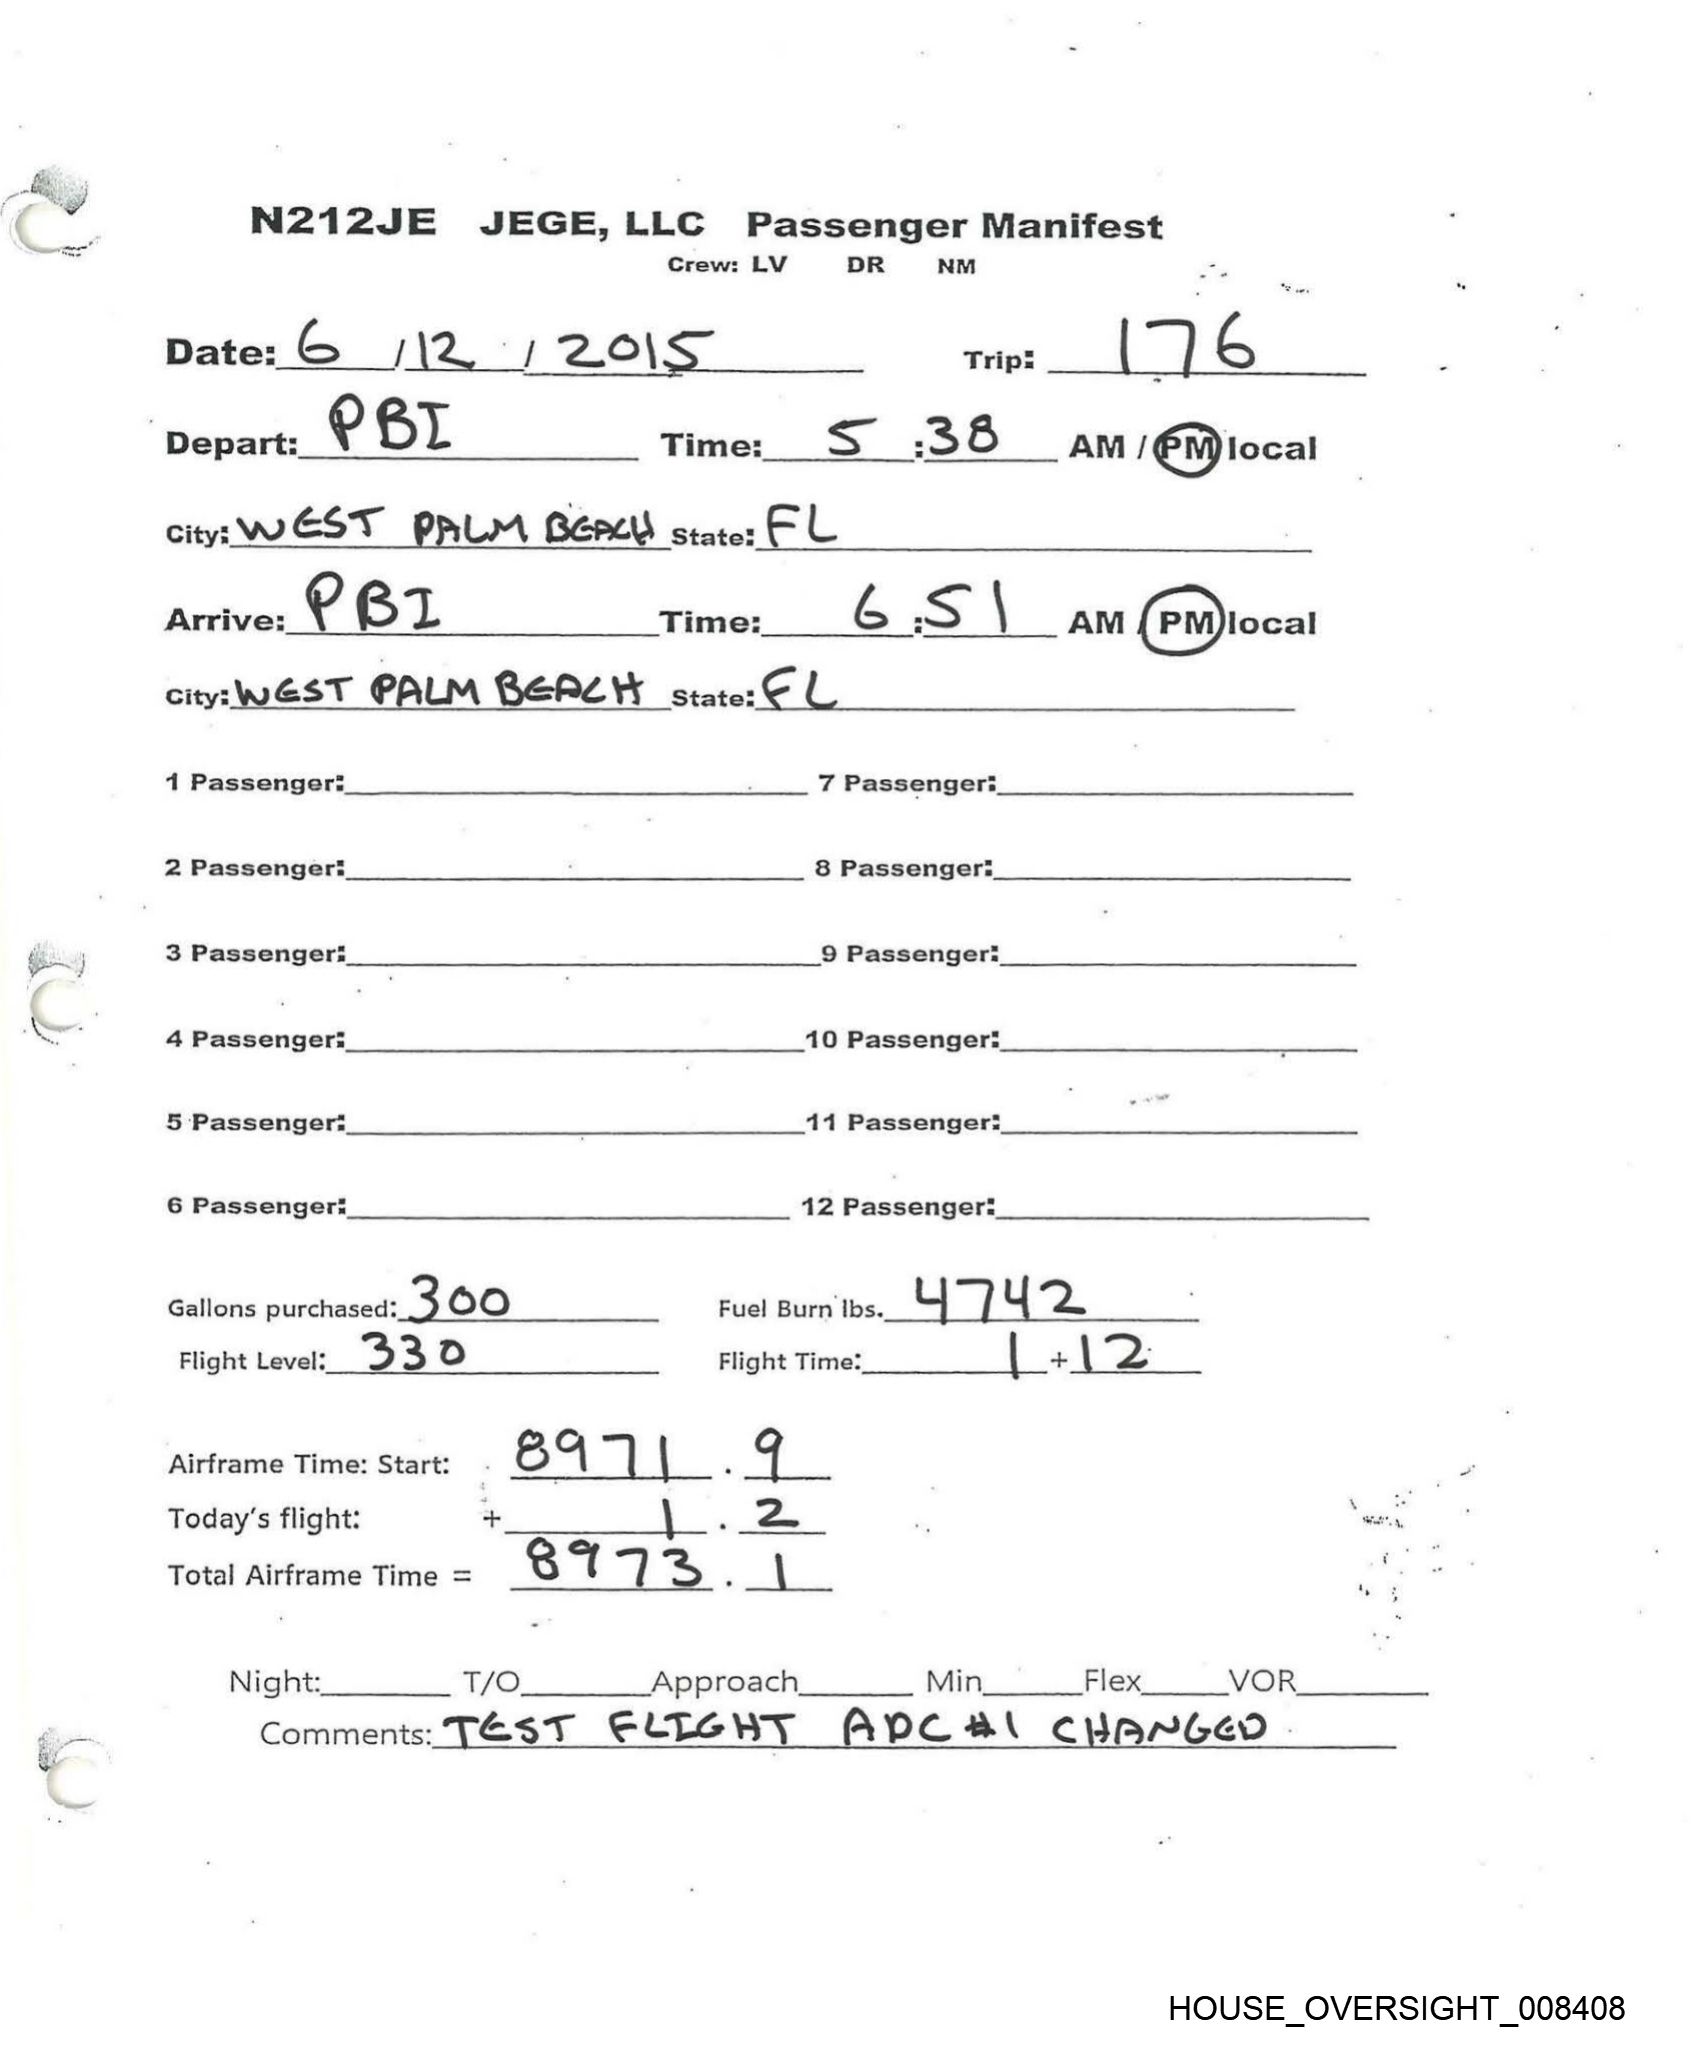 N212JE JEGE, LLC Passenger Manifest
Crew: LV DR NM
Date: 6 / 12 / 2015 Trip: 176
Depart: PBI Time: 5 : 38 AM / PM local
City: WEST PALM BEACH State: FL
Arrive: PBI Time: 6 : 51 AM / PM local
City: WEST PALM BEACH State: FL
1 Passenger: 7 Passenger:
2 Passenger: 8 Passenger:
3 Passenger: 9 Passenger:
4 Passenger: 10 Passenger:
5 Passenger: 11 Passenger:
6 Passenger: 12 Passenger:
Gallons purchased: 300 Fuel Burn lbs. 4742
Flight Level: 330 Flight Time: 1 + 12
Airframe Time: Start: 8971 . 9
Today's flight: + 1 . 2
Total Airframe Time = 8973 . 1
Night: T/O Approach Min Flex VOR
Comments: TEST FLIGHT ADC #1 CHANGED
HOUSE_OVERSIGHT_008408